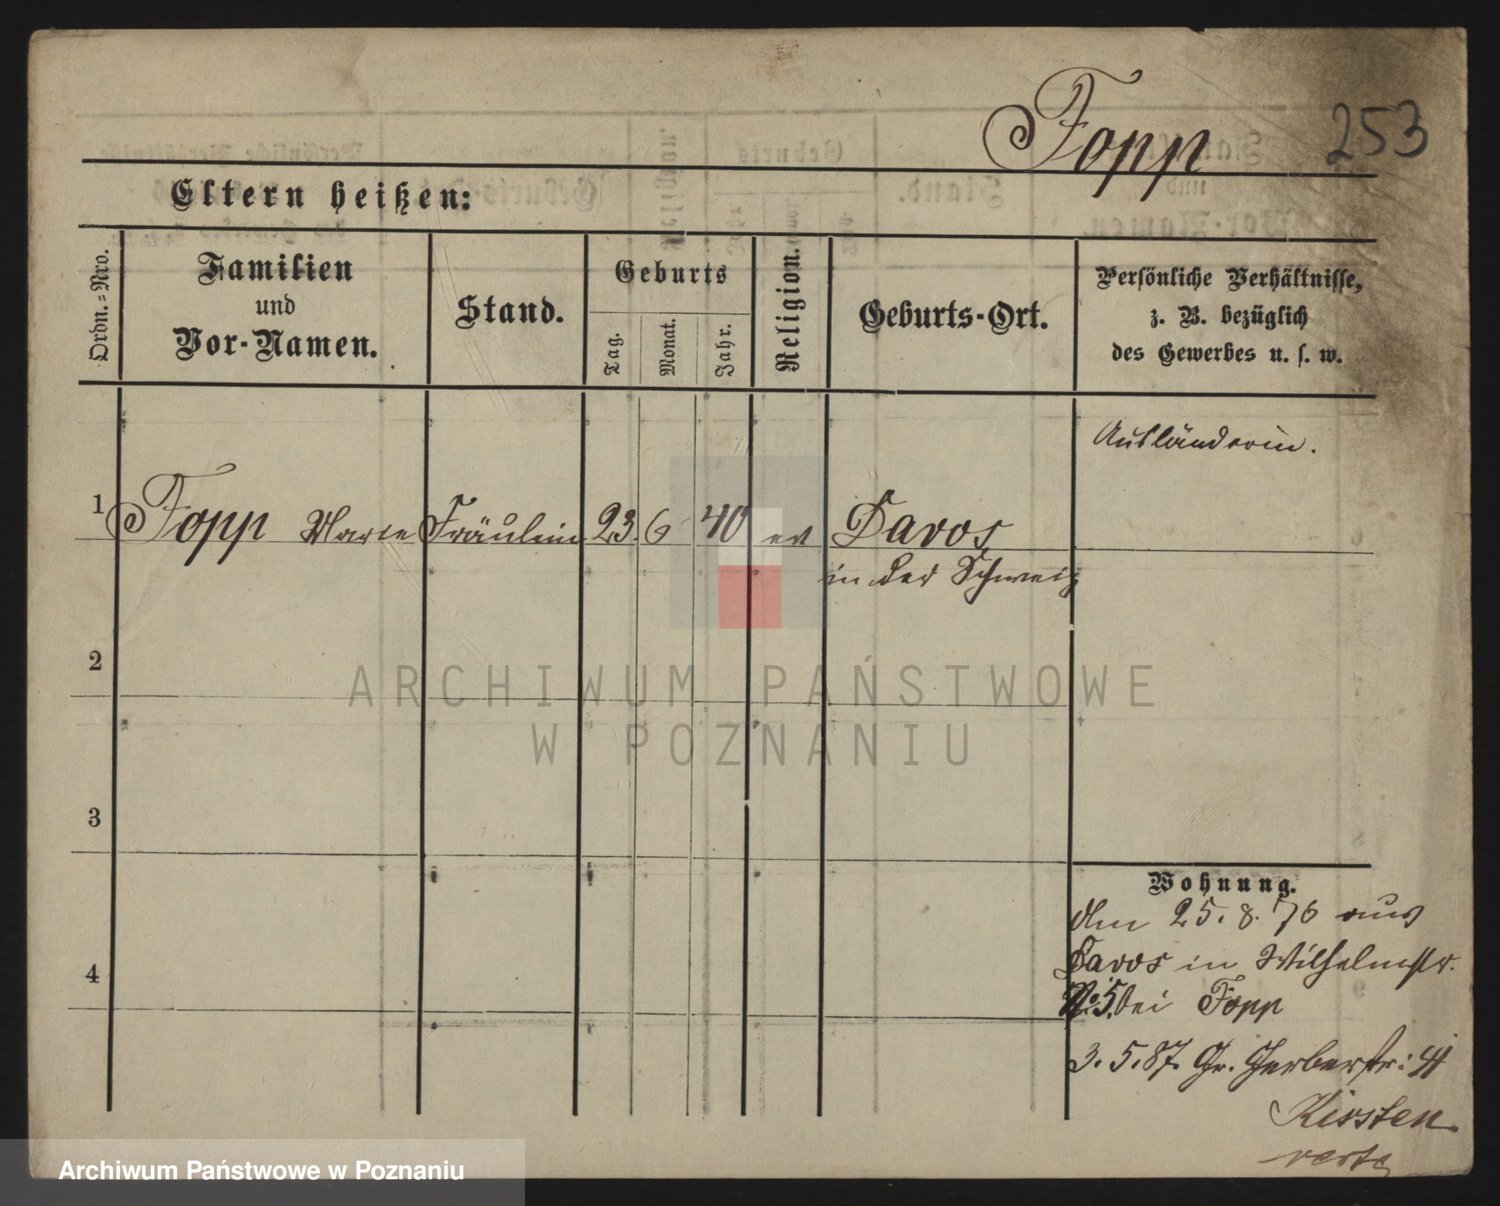 Fopp 253
Eltern heißen:
Ordn.=Nro.
Familien
und
Vor-Namen.
Stand.
Geburts
Tag.
Monat.
Jahr.
Religion.
Geburts-Ort.
Persönliche Verhältnisse,
z. B. bezüglich
des Gewerbes u. s. w.
Ausländerin.
1 Fopp Marie Fräulein 23. 6 40 ev Davos
in der Schweiz
2
3
4
Wohnung.
den 25. 8. 76 aus
Davos in Wilhelmstr.
No. 5. bei Fopp
3. 5. 87. Gr. Gerberstr: 41
Kirsten
verte
ARCHIWUM PAŃSTWOWE
W POZNANIU
Archiwum Państwowe w Poznaniu